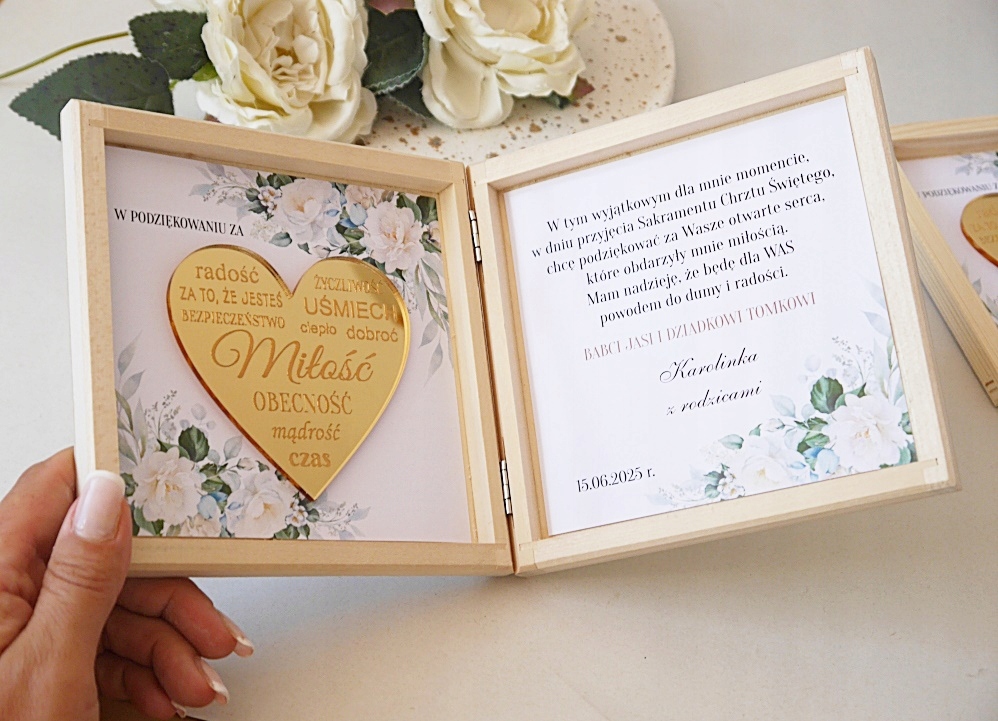 W PODZIĘKOWANIU ZA
radość
ŻYCZLIWOŚĆ
ZA TO, ŻE JESTEŚ
UŚMIECH
BEZPIECZEŃSTWO
ciepło dobroć
Miłość
OBECNOŚĆ
mądrość
czas
W tym wyjątkowym dla mnie momencie,
w dniu przyjęcia Sakramentu Chrztu Świętego,
chcę podziękować za Wasze otwarte serca,
które obdarzyły mnie miłością.
Mam nadzieję, że będę dla WAS
powodem do dumy i radości.
BABCI JASI I DZIADKOWI TOMKOWI
Karolinka
z rodzicami
15.06.2025 r.
W PODZIĘKOWANIU